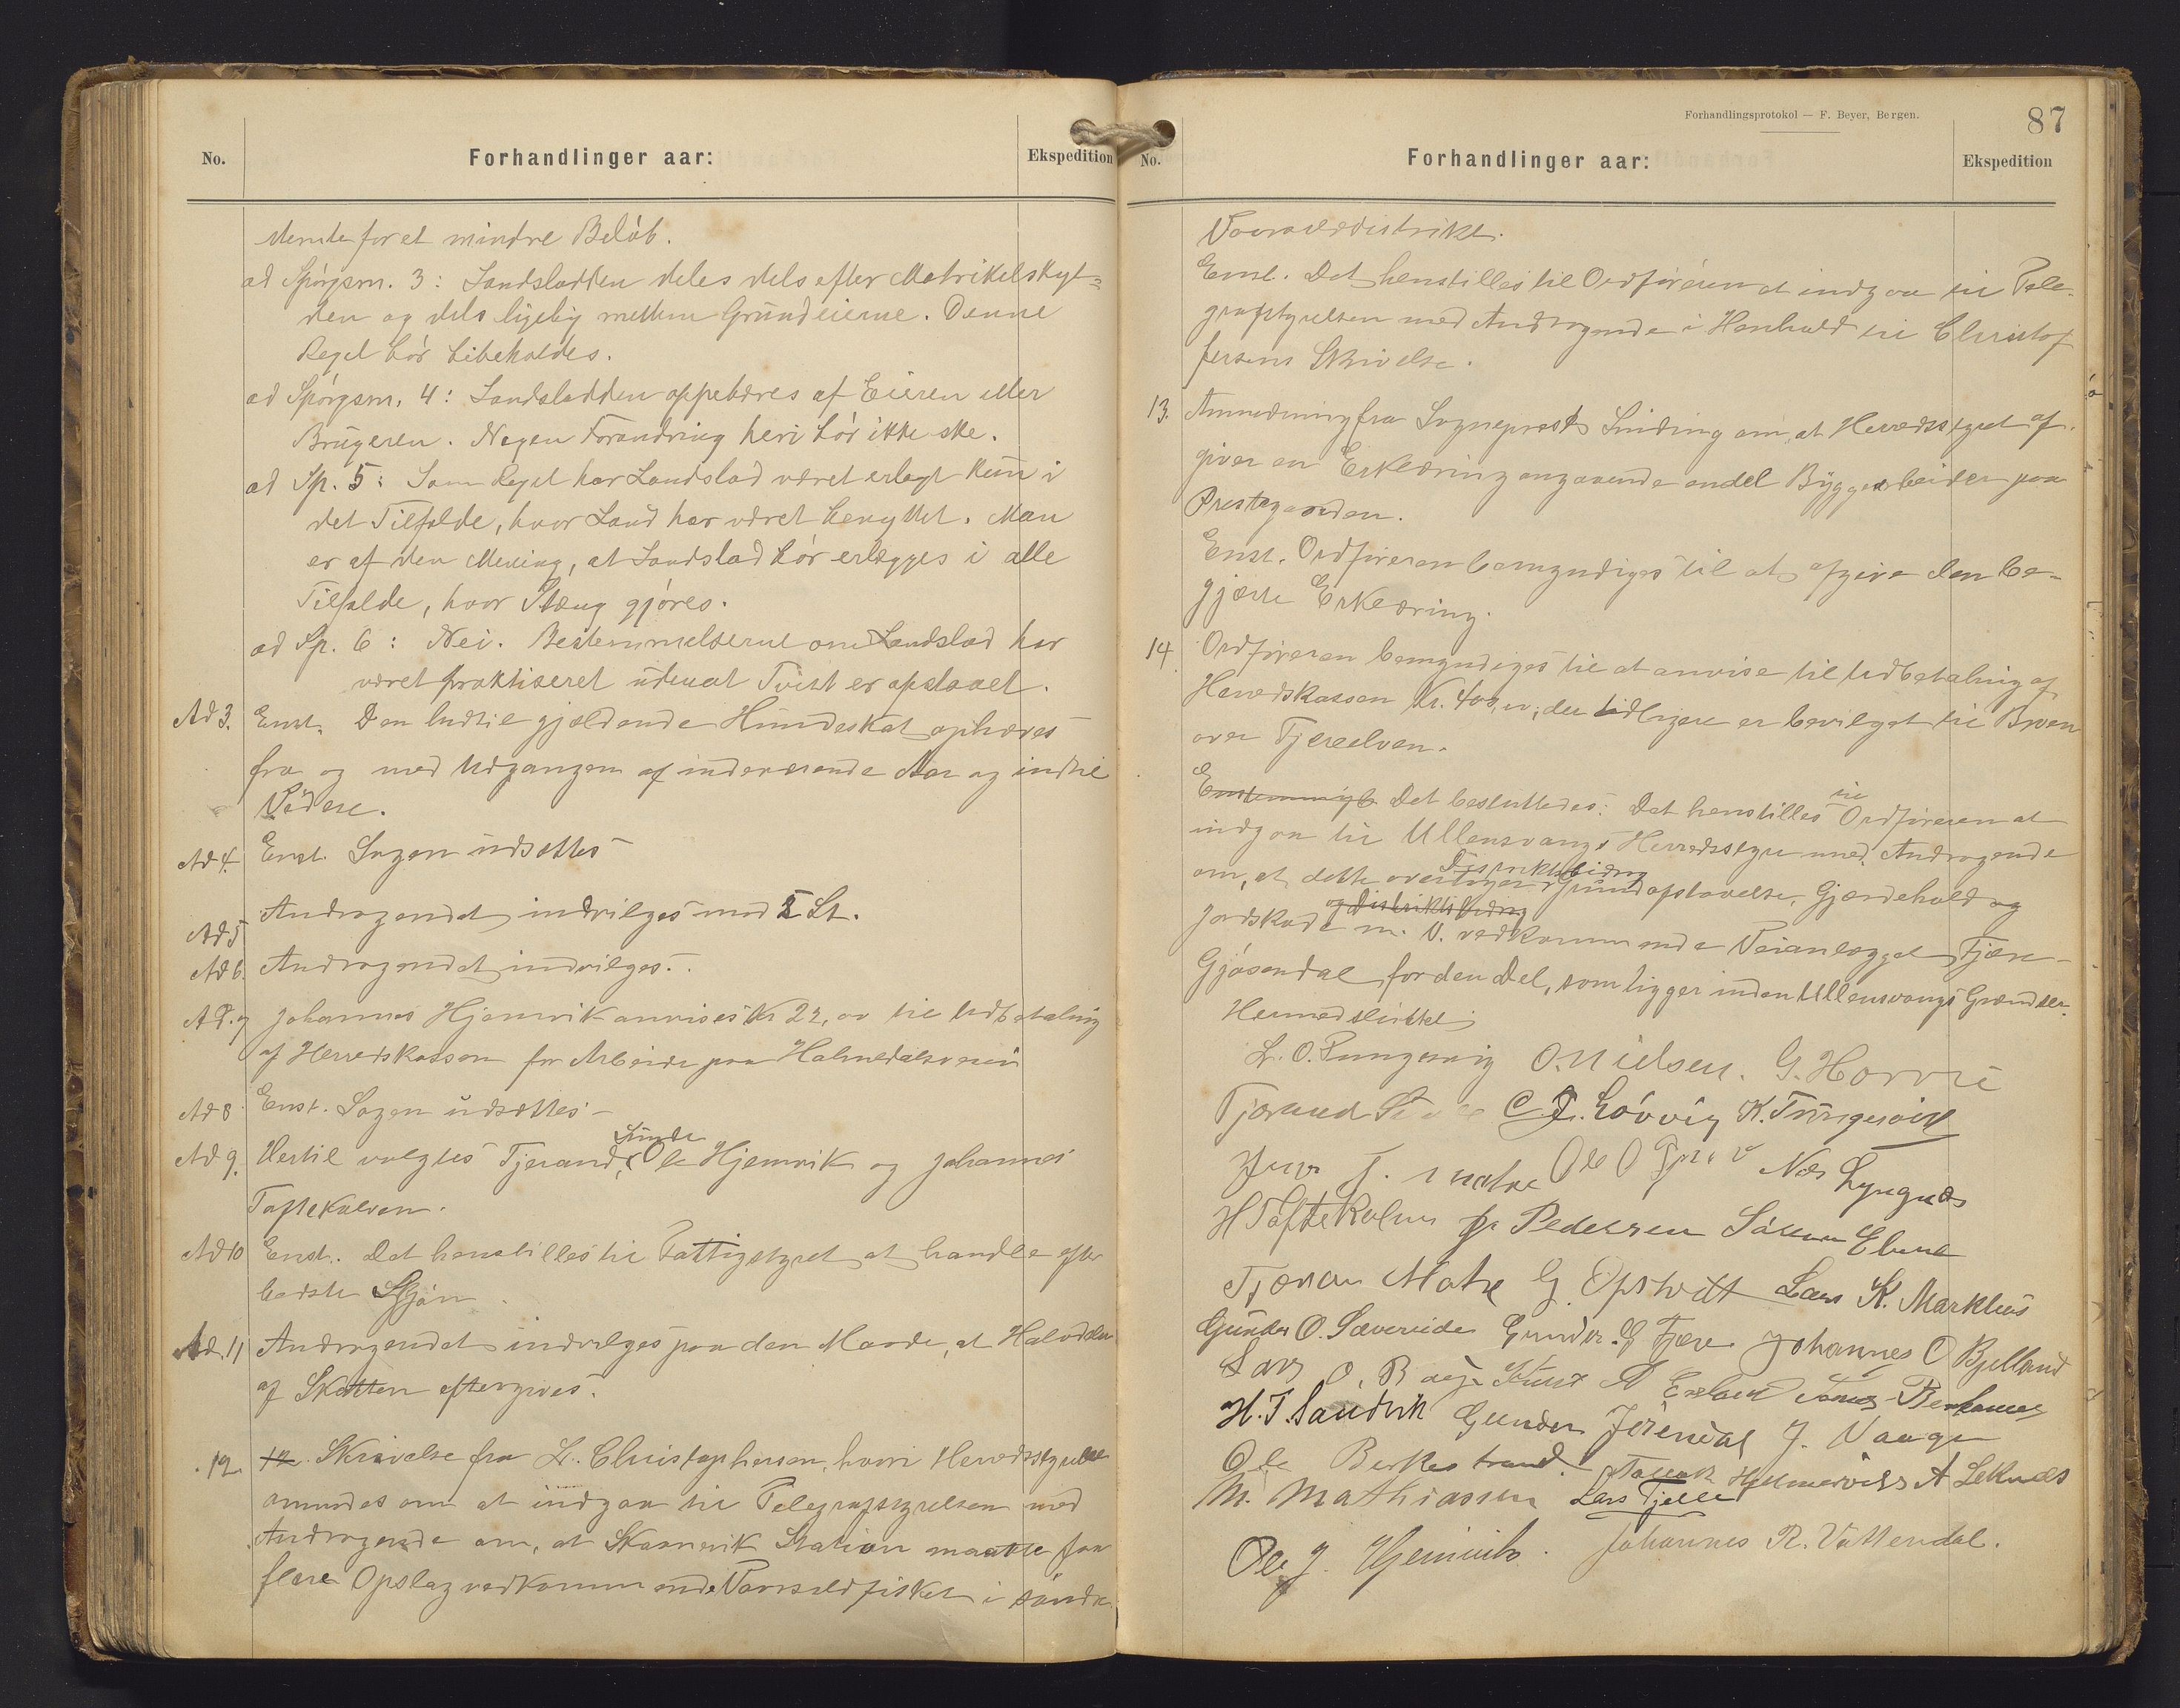 No.
Forhandlinger aar:
Ekspedition
dende for et mindre Beløb.
ad Spørgsm. 3: Landslodden deles dels efter Matrikelskyl-
den og dels ligelig mellem Grundeierne. Denne
Regel bør bibeholdes.
ad Spørgsm. 4: Landslodden oppebæres af Eieren eller
Brugeren. Nogen Forandring heri bør ikke ske.
ad Sp. 5: Som Regel har Landslod været erlagt kun i
det Tilfælde, hvor Land har været benyttet. Man
er af den Mening, at Landslod bør erlægges i alle
Tilfælde, hvor Stæng gjøres.
ad Sp. 6: Nei. Bestemmelserne om Landslod har
været praktiseret uden at Tvist er opstaaet.
Ad 3. Enst. Den hidtil gjældende Hundeskat ophæves
fra og med Udgangen af indeværende Aar og indtil
Videre.
Ad 4. Enst. Sagen udsættes
Ad 5 Andragendet indvilges med 2 St.
Ad 6. Andragendet indvilges.
Ad. 7 Johannes Hjemvik anvises Kr 22,00 til Udbetaling
af Herredskassen for Arbeide paa Halnedalsveien
Ad 8 Enst. Sagen udsættes
Ad 9. Dertil valgtes Tjerand Sunde, Ole Hjemvik og Johannes
Toftekalven.
Ad 10 Enst. Det henstilles til Fattigstyret at handle efter
bedste Skjøn
Ad. 11 Andragendet indvilges paa den Maade, at Halvdelen
af Skatten eftergives.
12. 12. Skrivelse fra L. Christophersen, hvori Herredsstyrelsen
anmodes om at indgaa til Telegrafstyrelsen med
Andragende om, at Skaanevik Station maatte faa
flere Opslag vedkommende Vaarsildfisket i søndre
Forhandlingsprotokol — F. Beyer, Bergen.
87
No.
Forhandlinger aar:
Ekspedition
Vaarsilddistrikt.
Enst. Det henstilles til Ordføreren at indgaa til Tele-
grafstyrelsen med Andragende i Henhold til Christof
fersens Skrivelse.
13. Anmodning fra Sogneprest Sinding om, at Herredsstyret af-
giver en Erklæring angaaende endel Byggearbeider paa
Prestegaarden.
Enst. Ordføreren bemyndiges til at afgive den be-
gjærte Erklæring.
14. Ordføreren bemyndiges til at anvise til Udbetaling af
Herredskassen Kr. 400,00, der tidligere er bevilget til Broen
over Tjereelven.
Enstemmigt Det besluttedes: Det henstilles til Ordføreren at
indgaa til Ullensvangs Herredsstyre med Andragende
om, at dette overtager Distriktsbidrag Grundafstaaelse, Gjærdehold og
Jordskade og Distriktsbidrag m. V. vedkommende Veianlægget Fjære-
Gjøsendal for den Del, som ligger inden Ullensvangs Grændser.
Hermed sluttet
L. O. Tungesvig O. Nielsen. G. Horvie
Tjerand Sunde C. J. Løvvig K. Tungesvik
J. Matre Ole O Næs Lyngnæs
H Toftekalven Pedersen Ebne
Tjeran Matre G. Opstvedt Lars K. Markhus
Gunder O. Sævereide Gunder G Fjære Johannes O Bjelland
Lars O. A
H. T. Sandvik Gunder Jøsendal J. Vaage
Ole Berkestrand. A Leknes
M. Mathiassen Lars Fjelle
Ole J. Hjemvik. Johannes R. Vattendal.